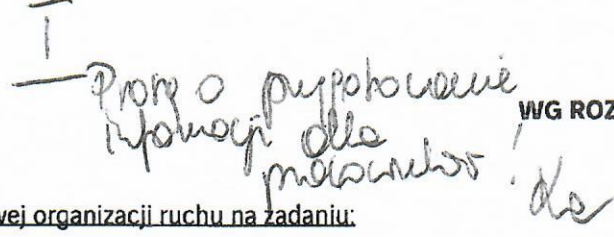 I
Proszę o przygotowanie
informacji dla
pracowników!
WG ROZ
wej organizacji ruchu na zadaniu: